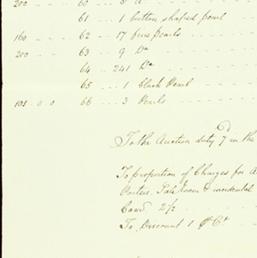 200 60
61 1 button shaped pearl
160 62 17 fine pearls
200 63 9 Do
64 241 Do
65 1 black Pearl
103 0 0 66 3 Pearls
To the Auction duty 7d in the
To proportion of Charges for A
Porters, Sale room & incidental
2½
To Discount 1 P Ct